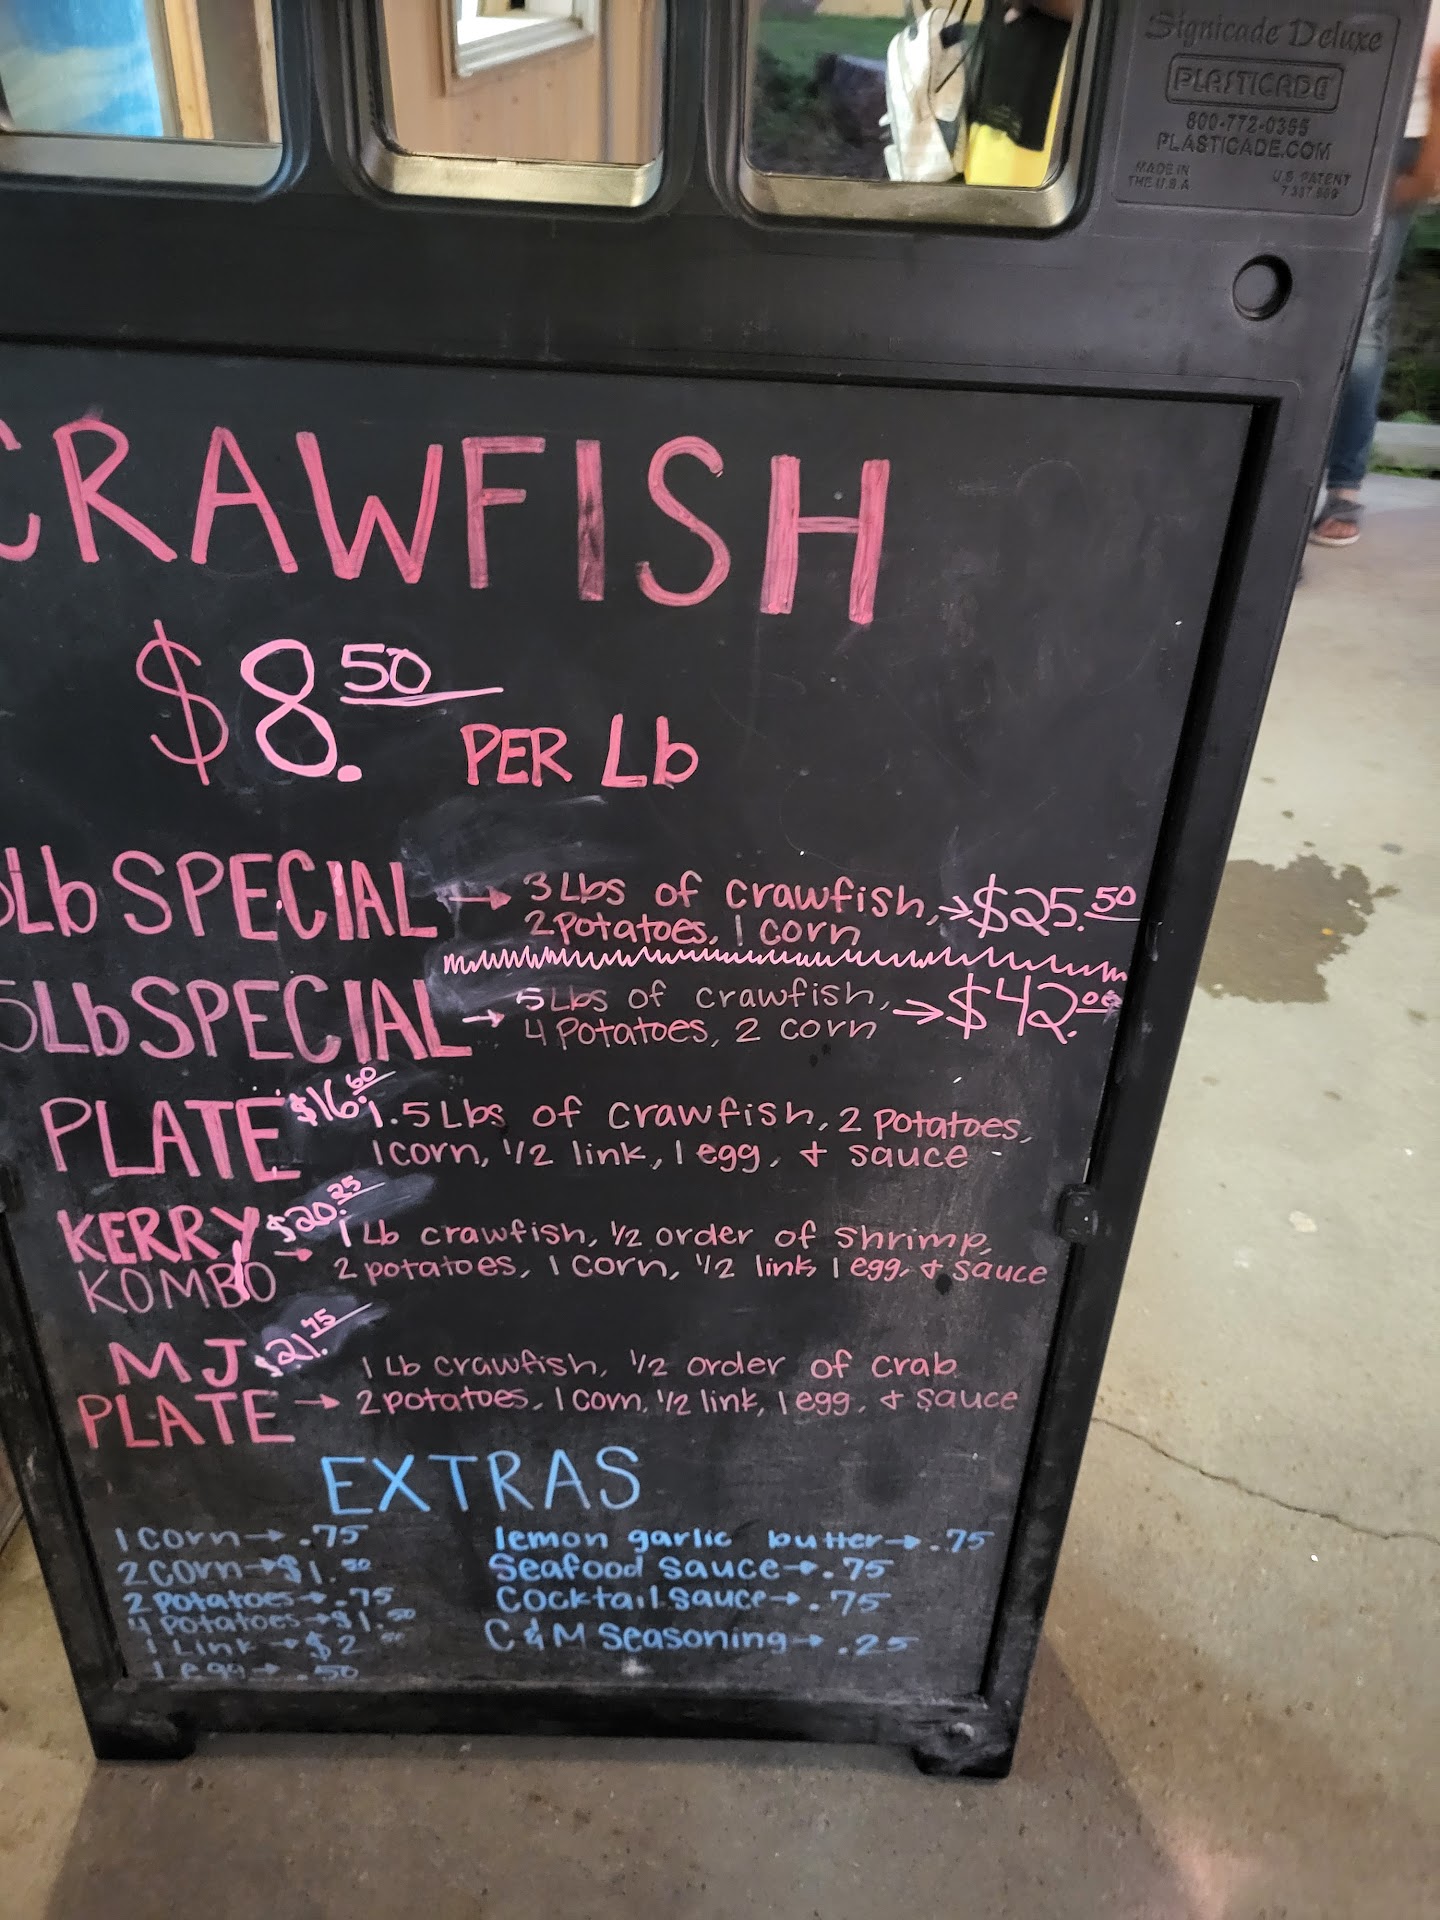 Signicade Deluxe
PLASTICADE
800-772-0355
PLASTICADE.COM
MADE IN THE U.S.A
U.S. PATENT
CRAWFISH
$8.50 PER Lb
Lb SPECIAL → 3 Lbs of crawfish, → $25.50
2 potatoes, 1 corn
5Lb SPECIAL → 5 Lbs of crawfish, → $42.00
4 potatoes, 2 corn
PLATE $16.60 1.5 Lbs of crawfish, 2 potatoes,
1 corn, 1/2 link, 1 egg, + sauce
KERRY $20.25 1 Lb crawfish, 1/2 order of shrimp,
KOMBO → 2 potatoes, 1 corn, 1/2 link, 1 egg, + sauce
MJ $21.75 1 Lb crawfish, 1/2 order of crab
PLATE → 2 potatoes, 1 corn, 1/2 link, 1 egg, + sauce
EXTRAS
1 corn → .75
2 corn → $1.50
2 potatoes → .75
4 potatoes → $1.50
1 Link → $2
1 egg → .50
lemon garlic butter → .75
Seafood sauce → .75
Cocktail sauce → .75
C & M Seasoning → .25